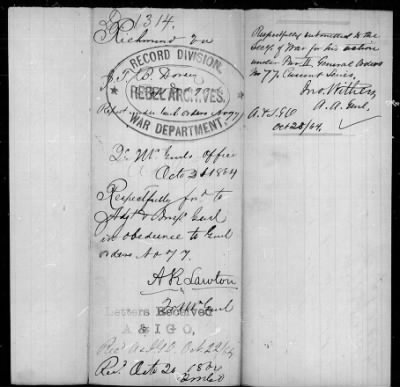 1314.
Richmond Va
RECORD DIVISION,
J. T. B. Dorsey
REBEL ARCHIVES,
Report under Genl orders No 77
WAR DEPARTMENT.
Qr Mr Genls Office
Octo 21 1864
Respectfully for'd to
Adjt & Insp Genl
in obedience to Genl
orders No 77.
A R Lawton
Qr Mr Genl
Letters Received
A & I G O,
Rec. A&IGO. Oct 22/64
Rec. Octo 20
Respectfully submitted to the
Secy of War for his action
under General Orders
No 77, Current Series.
Jno. Withers
A. A. Genl.
A. & I. G. O
Oct 28/64.